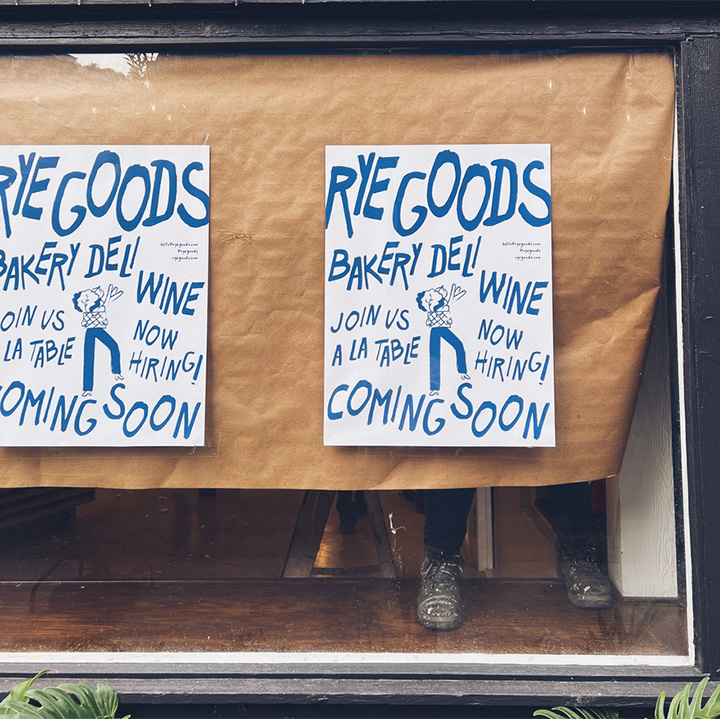 RYE GOODS
hello@ryegoods.com
@ryegoods
ryegoods.com
BAKERY DELI
WINE
OIN US
LA TABLE
NOW
HIRING!
COMING SOON
RYE GOODS
hello@ryegoods.com
@ryegoods
ryegoods.com
BAKERY DELI
WINE
JOIN US
A LA TABLE
NOW
HIRING!
COMING SOON